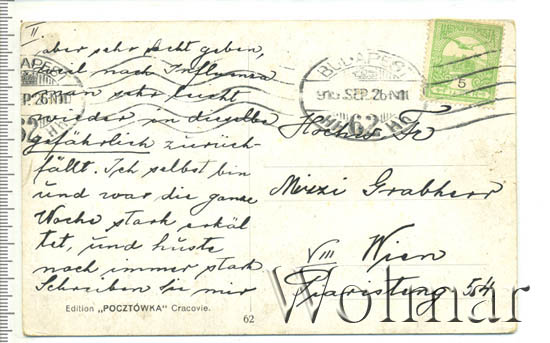 II
aber sehr Acht geben,
weil nach Influenza
man sehr leicht
wieder in dieselbe
gefährlich zurück-
fällt. Ich selbst bin
und war die ganze
Woche stark erkäl
tet, und huste
noch immer stark
Schreiben Sie mir
BUDAPEST
SEP. 26
62
BUDAPEST
SEP. 26
62
5
Hochw. Fr
Mizzi Grabherr
VIII Wien
Piaristeng 54
Edition „POCZTÓWKA" Cracovie.
62
Wolmar